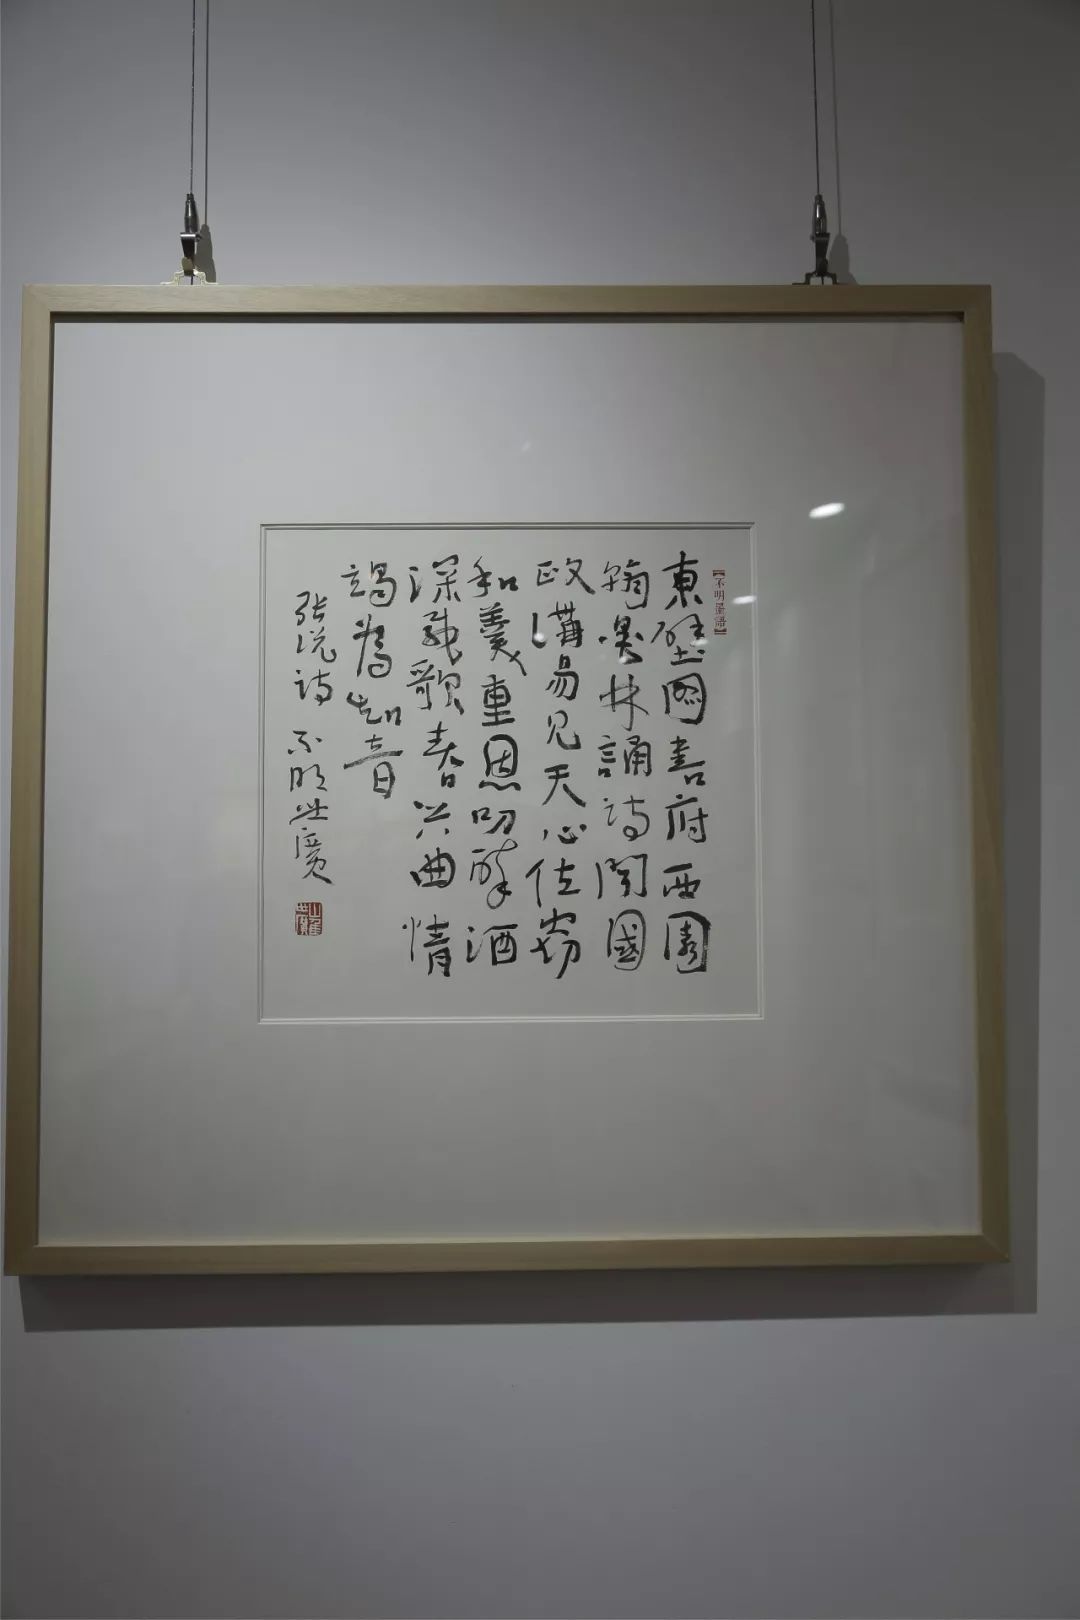 【不明墨語】
東壁圖書府西園
翰墨林誦詩聞國
政講易见天心位窃
和羹重恩叨醉酒
深載歌春兴曲情
竭為知音
张说诗 不明世廣
崔世廣